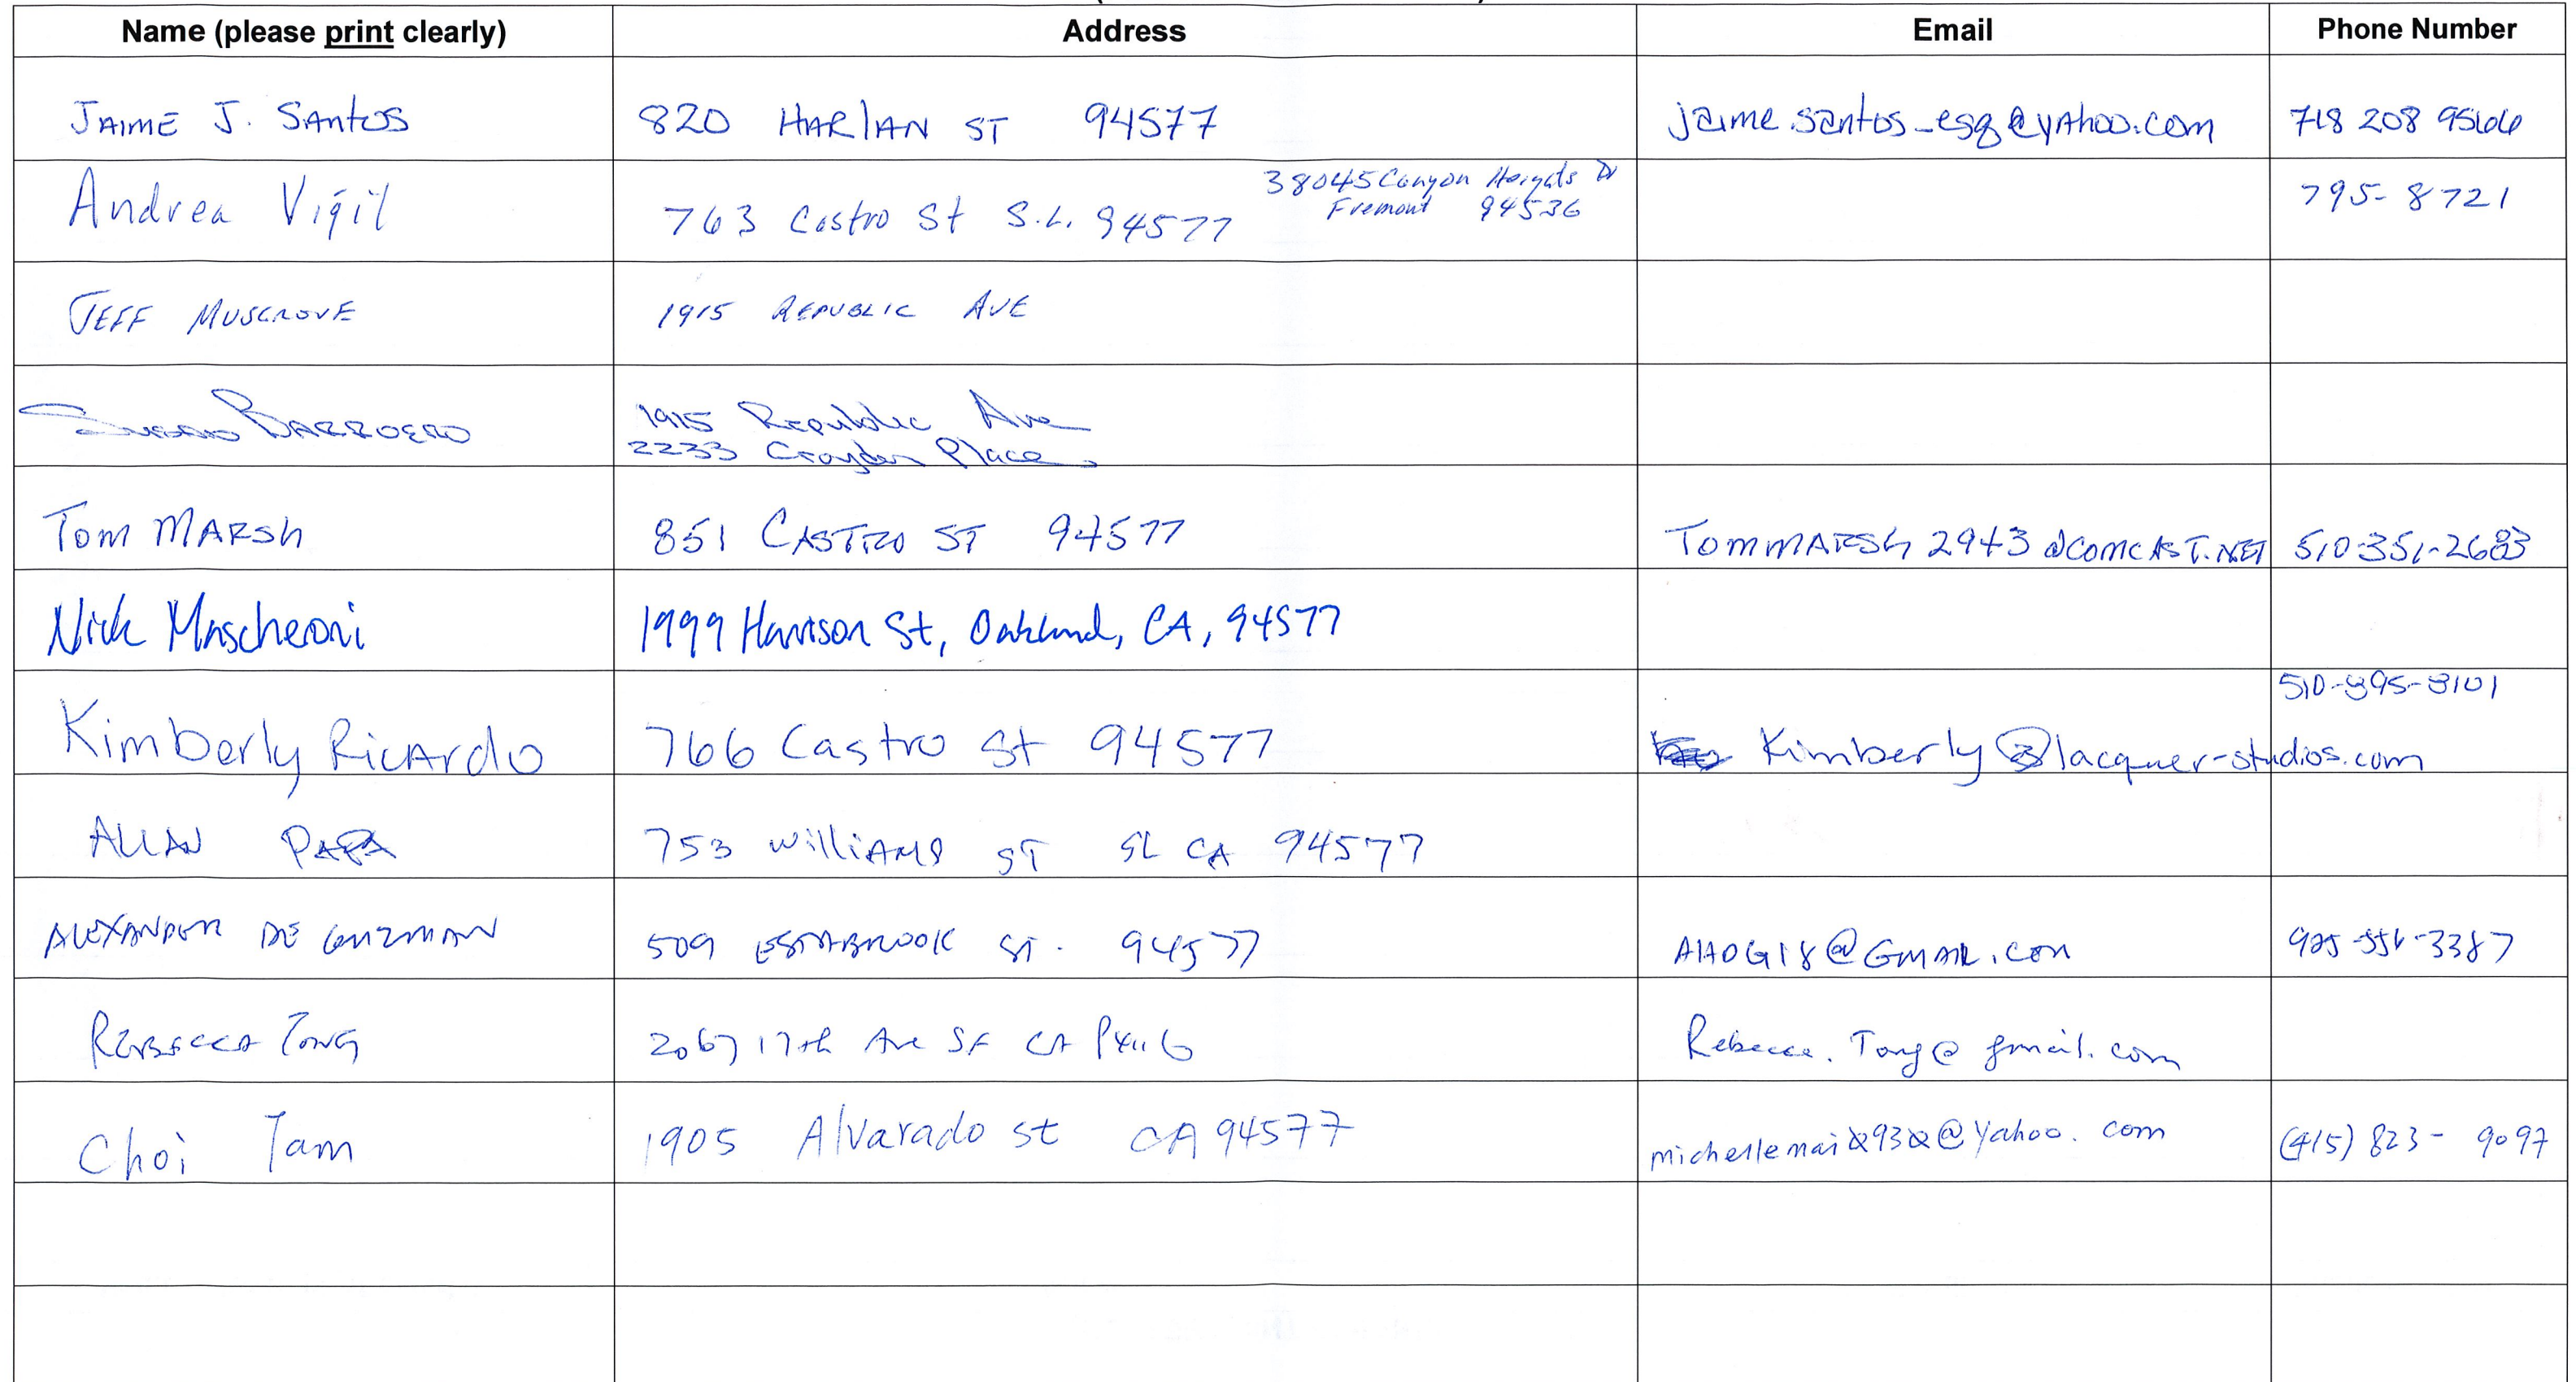 Name (please print clearly) Address Email Phone Number
JAIME J. SANTOS 820 HARLAN ST 94577 jaime.santos_esq@yahoo.com 718 208 9566
Andrea Vigil 763 Castro St S.L. 94577 38045 Canyon Heights Dr 795-8721
Fremont 94536
JEFF MUSGROVE 1915 REPUBLIC AVE
Susan BARROERO 1915 Republic Ave
2233 Croyden Place
Tom MARSH 851 CASTRO ST 94577 TomMARSH2943@COMCAST.NET 510-351-2683
Nick Mascheroni 1999 Harrison St, Oakland, CA, 94577
510-895-8101
Kimberly Ricardo 766 Castro St 94577 Kimberly@lacquer-studios.com
ALLAN PAPA 753 WilliAMS ST SL CA 94577
ALEXANDER DE GUZMAN 509 ESTABROOK ST. 94577
REBECCA TONG 2067 17th Ave SF CA 94116 Rebecca.Tong@gmail.com
Choi Tam 1905 Alvarado st CA 94577 michellemai2932@yahoo.com (415) 823-9097